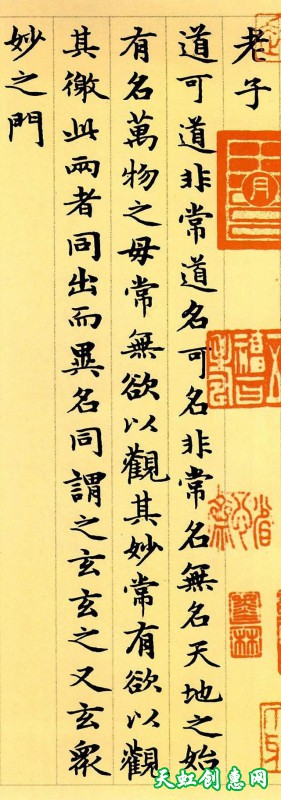 老子
道可道非常道名可名非常名無名天地之始
有名萬物之母常無欲以觀其妙常有欲以觀
其徼此兩者同出而異名同謂之玄玄之又玄眾
妙之門
天虹创惠网